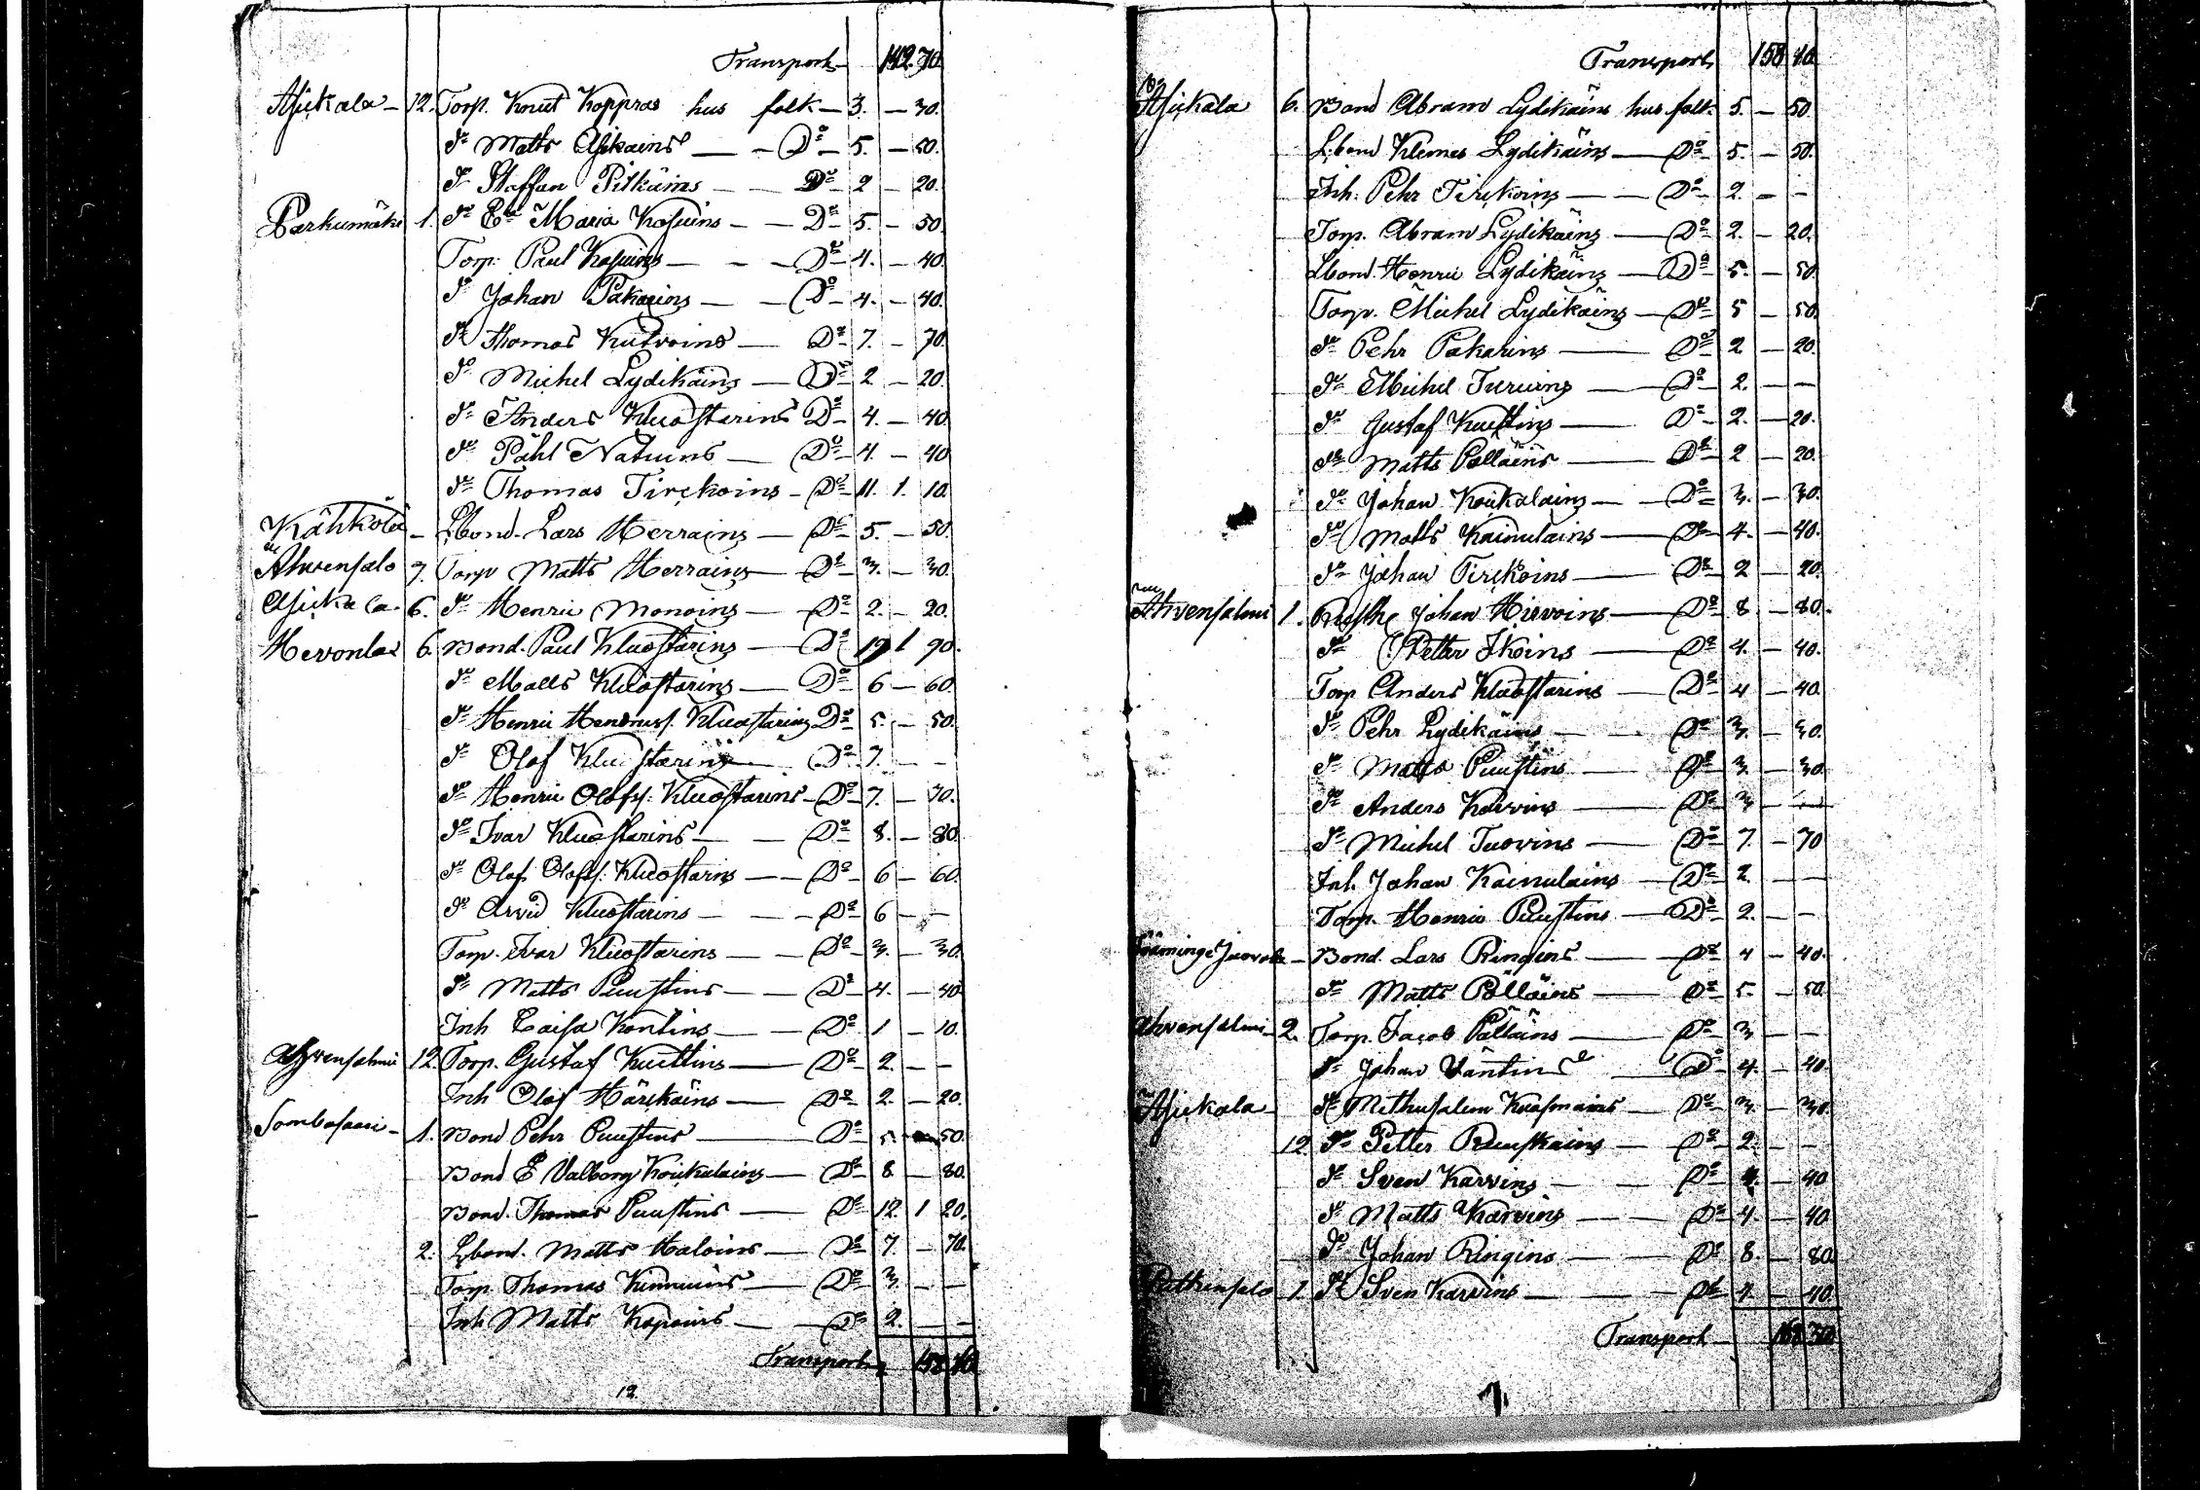 Transport 142.70.
Asickala 12. Torp. Knut Koppras hus folk 3. — 30.
Do Matts Asikains Do 5. — 50.
Do Staffan Pitkäins Do 2 — 20.
Parkumäki 1. Do Maria Kosuins Do 5. — 50.
Torp. Paul Kosuins Do 4. — 40.
Do Johan Pakarins Do 4. — 40.
Do Thomas Kutvoins Do 7. — 70.
Do Michel Lydikäins Do 2 — 20.
Do Anders Kluostarins Do 4. — 40.
Do Påhl Natuins Do 4. — 40
Do Thomas Tirckoins Do 11. 1. 10.
Lbond. Lars Herrains Do 5. — 50.
Ahvensalo 7. Torp Matts Herrains Do 3. — 30.
Asickala 6. Do Henric Monoins Do 2. — 20.
Hevonla 6. Bond. Paul Kluostarins Do 19 1 90.
Do Matts Kluostarins Do 6 — 60.
Do Henric Hendricss. Kluostarins Do 5. — 50.
Do Olof Kluostarins Do 7. — —
Do Henric Olofss. Kluostarins Do 7. — 70.
Do Ivar Kluostarins Do 8. — 80.
Do Olof Olofss. Kluostarins Do 6 — 60.
Do Arvid Kluostarins Do 6 — —
Torp. Ivar Kluostarins Do 3. — 30.
Do Matts Puustins Do 4. — 40.
Inh Caisa Kontins Do 1 — 10.
Ahvensalmi 12. Torp. Gustaf Kuittins Do 2. — —
Inh Olof Härckäins Do 2. — 20.
Sombasaari 1. Bond Pehr Puustins Do 5. — 50.
Bond E Valborg Koukalains Do 8 — 80.
Bond. Thomas Puustins Do 12. 1 20.
2. Lbond. Matts Haloins Do 7. — 70.
Torp. Thomas Kinnuins Do 3. — —
Inh Matts Koposins Do 2. — —
Transport 158 10
12.
Transport 158 10.
Asickala 6. Bond Abram Lydikäins hus folk. 5. — 50.
Lbond Klemes Lydikäins Do 5. — 50.
Inh. Pehr Tirckoins Do 2. — —
Torp. Abram Lydikäins Do 2. — 20.
Lbond. Henric Lydikäins Do 5. — 50.
Torp. Michel Lydikäins Do 5 — 50.
Do Pehr Pakarins Do 2 — 20.
Do Michel Turuins Do 2. — —
Do Gustaf Kuittins Do 2. — 20.
Do Matts Pölläins Do 2 — 20.
Do Johan Koukalains Do 3. — 30.
Do Matts Kainulains Do 4. — 40.
Do Johan Tirckoins Do 2 — 20.
Ahvensalmi 1. Johan Hirvoins Do 8 — 80.
Do Petter Ikoins Do 4. — 40.
Torp Anders Kluostarins Do 4 — 40.
Do Pehr Lydikäins Do 3. — 30.
Do Matts Puustins Do 3. — 30.
Do Anders Karvins Do 3. — —
Do Michel Tuovins Do 7. — 70
Inh. Johan Kainulains Do 2. — —
Torp. Henric Puustins Do 2. — —
Bond. Lars Ringins Do 4 — 40.
Do Matts Pölläins Do 5. — 50.
Ahvensalmi 2. Torp. Jacob Pölläins Do 3 — —
Do Johan Väntins Do 4. — 40.
Asickala Do Methusalem Kuosmains Do 3. — 30.
12 Do Petter Ruuskains Do 2. — —
Do Sven Karvins Do 4. — 40
Do Matts Karvins Do 4. — 40
Do Johan Ringins Do 8. — 80.
1. Do Sven Karvins Do 4. — 40.
Transport